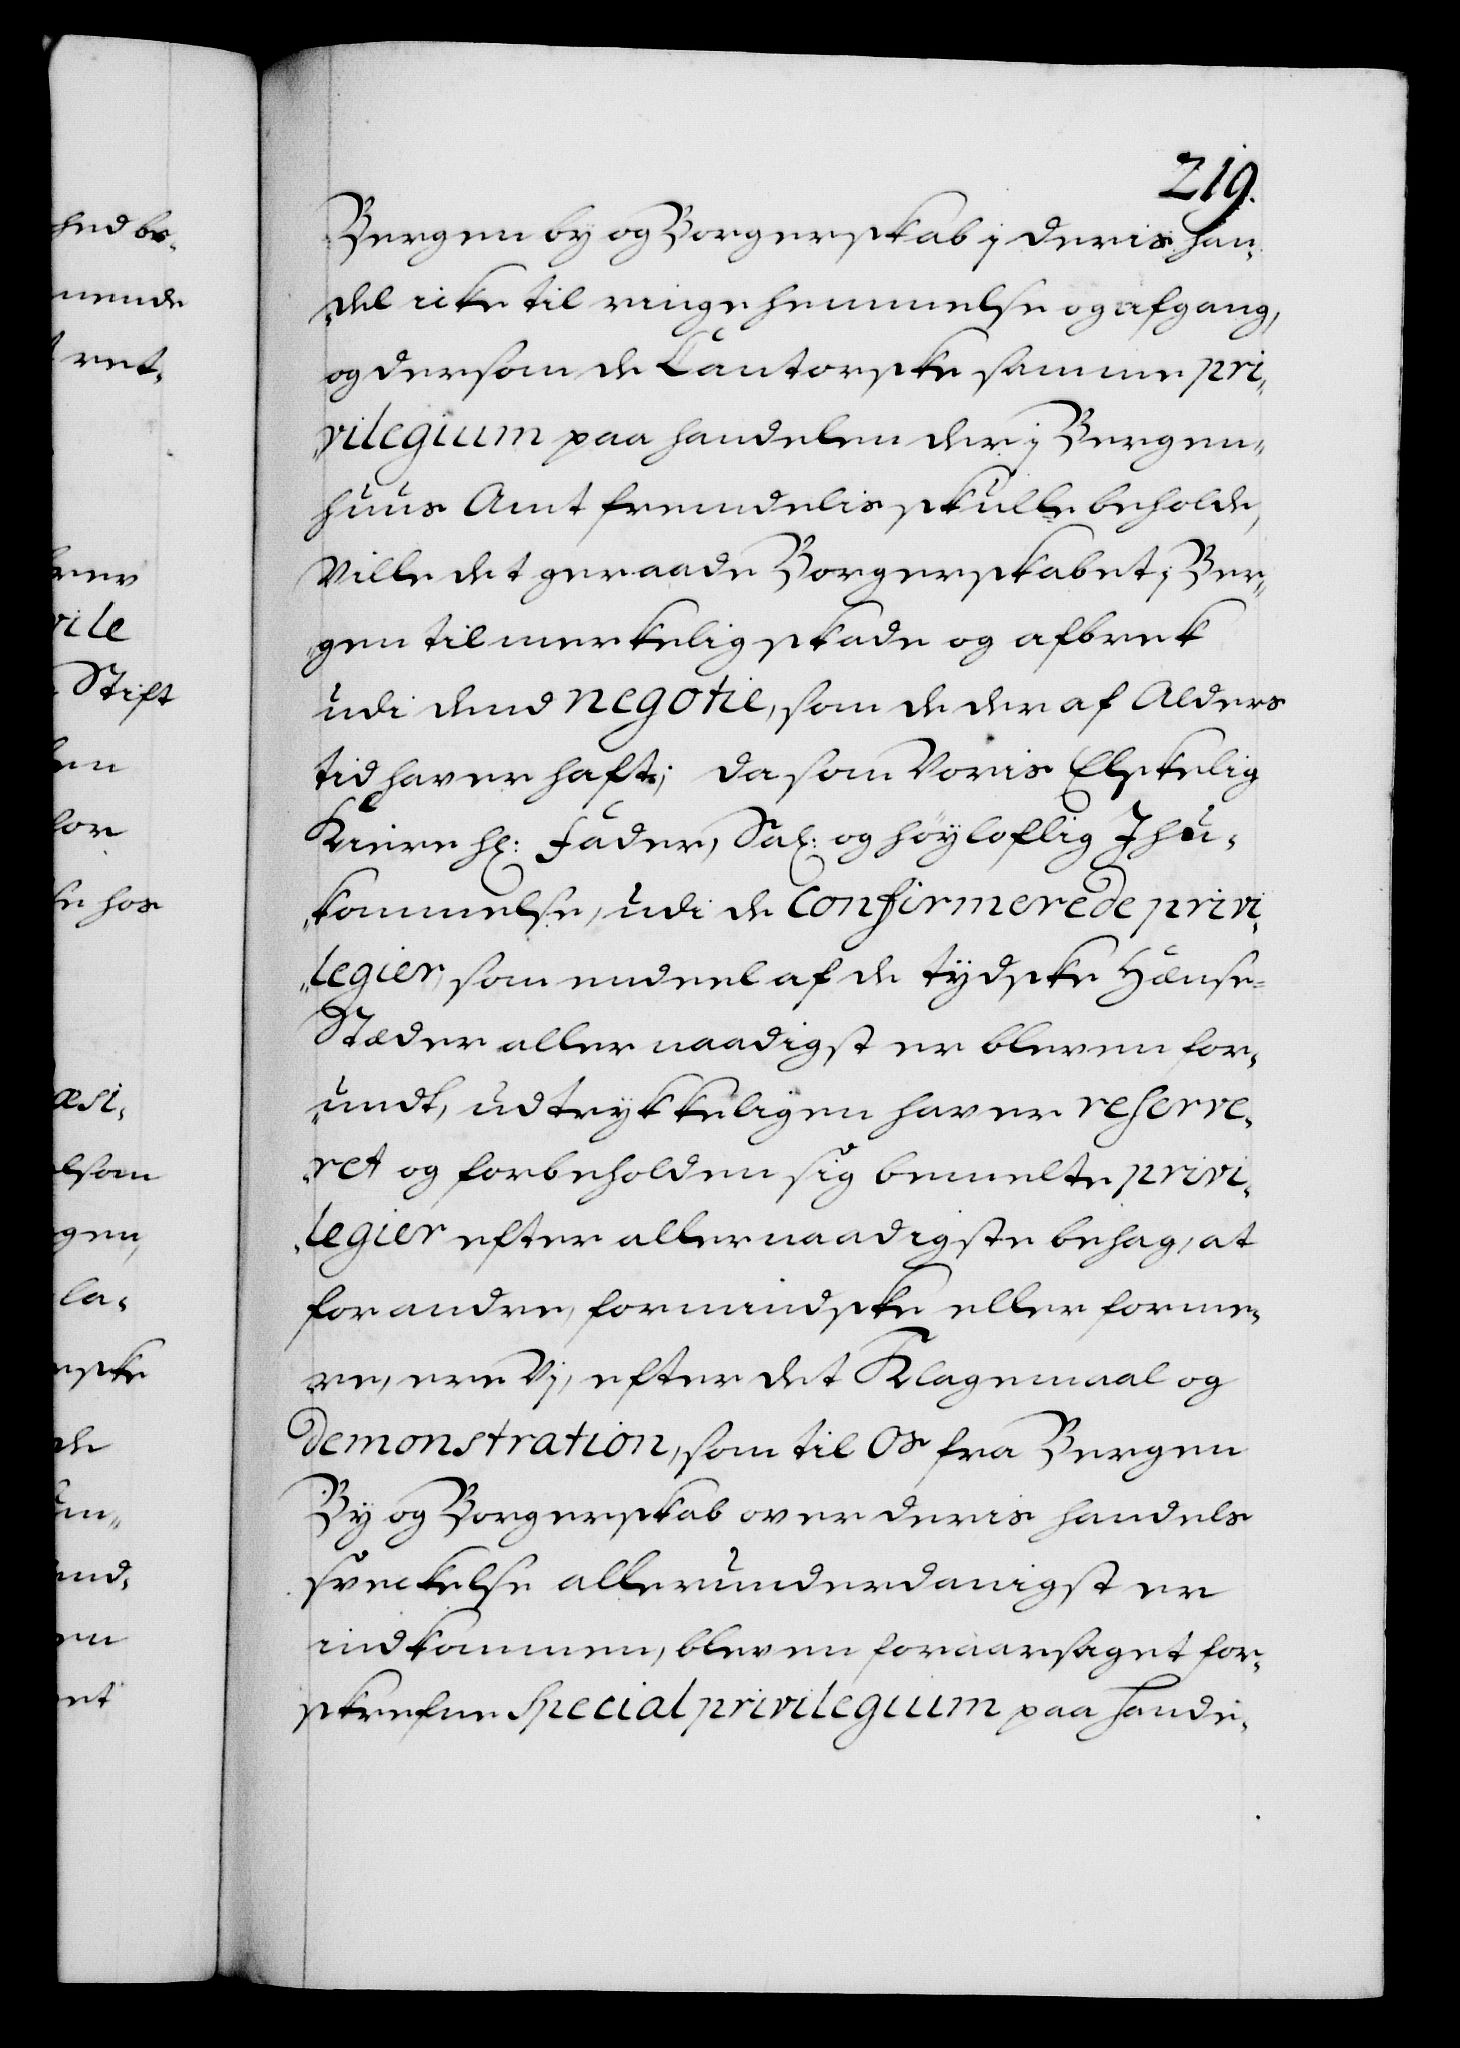 hed be-
mende
t ret-
brev
vile
Stift
len
for
ke hos
æsi-
elsom
gen,
la-
rske
de
um-
end-
en
et
219.
Bergen by og Borgerskab i deris han-
del icke til ringe hemmelse og afgang,
og dersom de Contorske samme pri-
vilegium paa handelen der i Bergen-
huus Amt fremdelis skulle beholde,
Ville det geraade Borgerskabet i Ber-
gen til merkelig skade og afbrek
udi dend negotie, som de der af Alders
tid haver haft; da som Voris Elskelig
Kiere Hr: Fader, Sal: og høyloflig Ihu-
kommelse, udi de confirmerede privi-
legier, som endeel af de tydske Hanse-
Stæder allernaadigst er bleven for-
undt, udtrykkeligen haver reserve-
ret og forbeholden sig bemelte privi-
legier efter allernaadigste behag, at
forandre, formindske eller forme-
re, ere Vi, efter det Klagemaal og
demonstration, som til Os fra Bergen
By og Borgerskab over deris handels
sveckelse allerunderdanigst er
indkommen, bleven foraarsaget for-
skrefne special privilegium paa Hande-